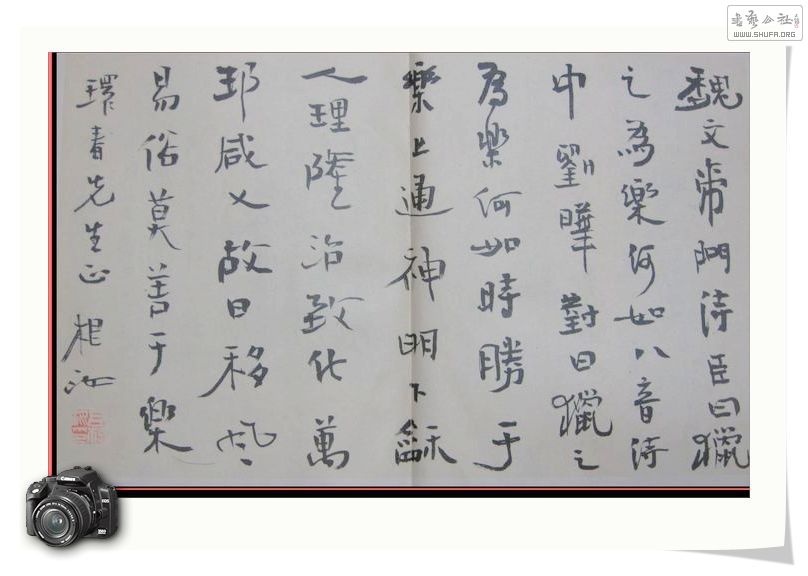 魏文帝問侍臣曰獵
之為樂何如八音侍
中劉曄對曰獵之
為樂何如時勝于
樂上通神明下龢
人理隆治致化萬
邦咸乂故曰移風
易俗莫善于樂
環青先生正
書藝公社
WWW.SHUFA.ORG
Canon
EOS